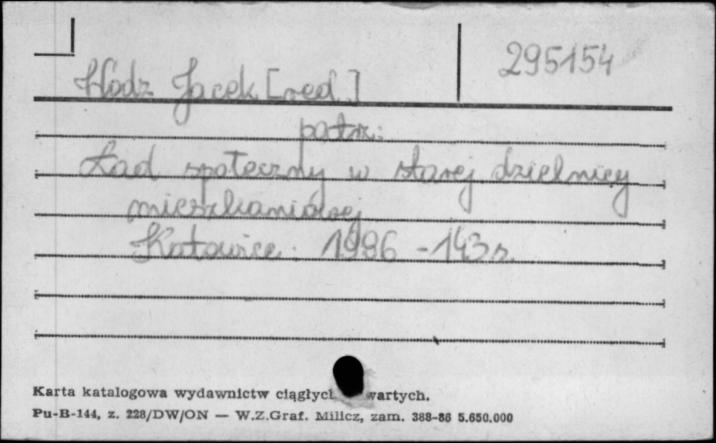 295154
Wódz Jacek [red.]
patrz:
Ład społeczny w starej dzielnicy
mieszkaniowej
Katowice : 1986 - 143 s.
Karta katalogowa wydawnictw ciągłych wartych.
Pu-B-144, z. 228/DW/ON — W.Z.Graf. Milicz, zam. 388-86 5.650.000